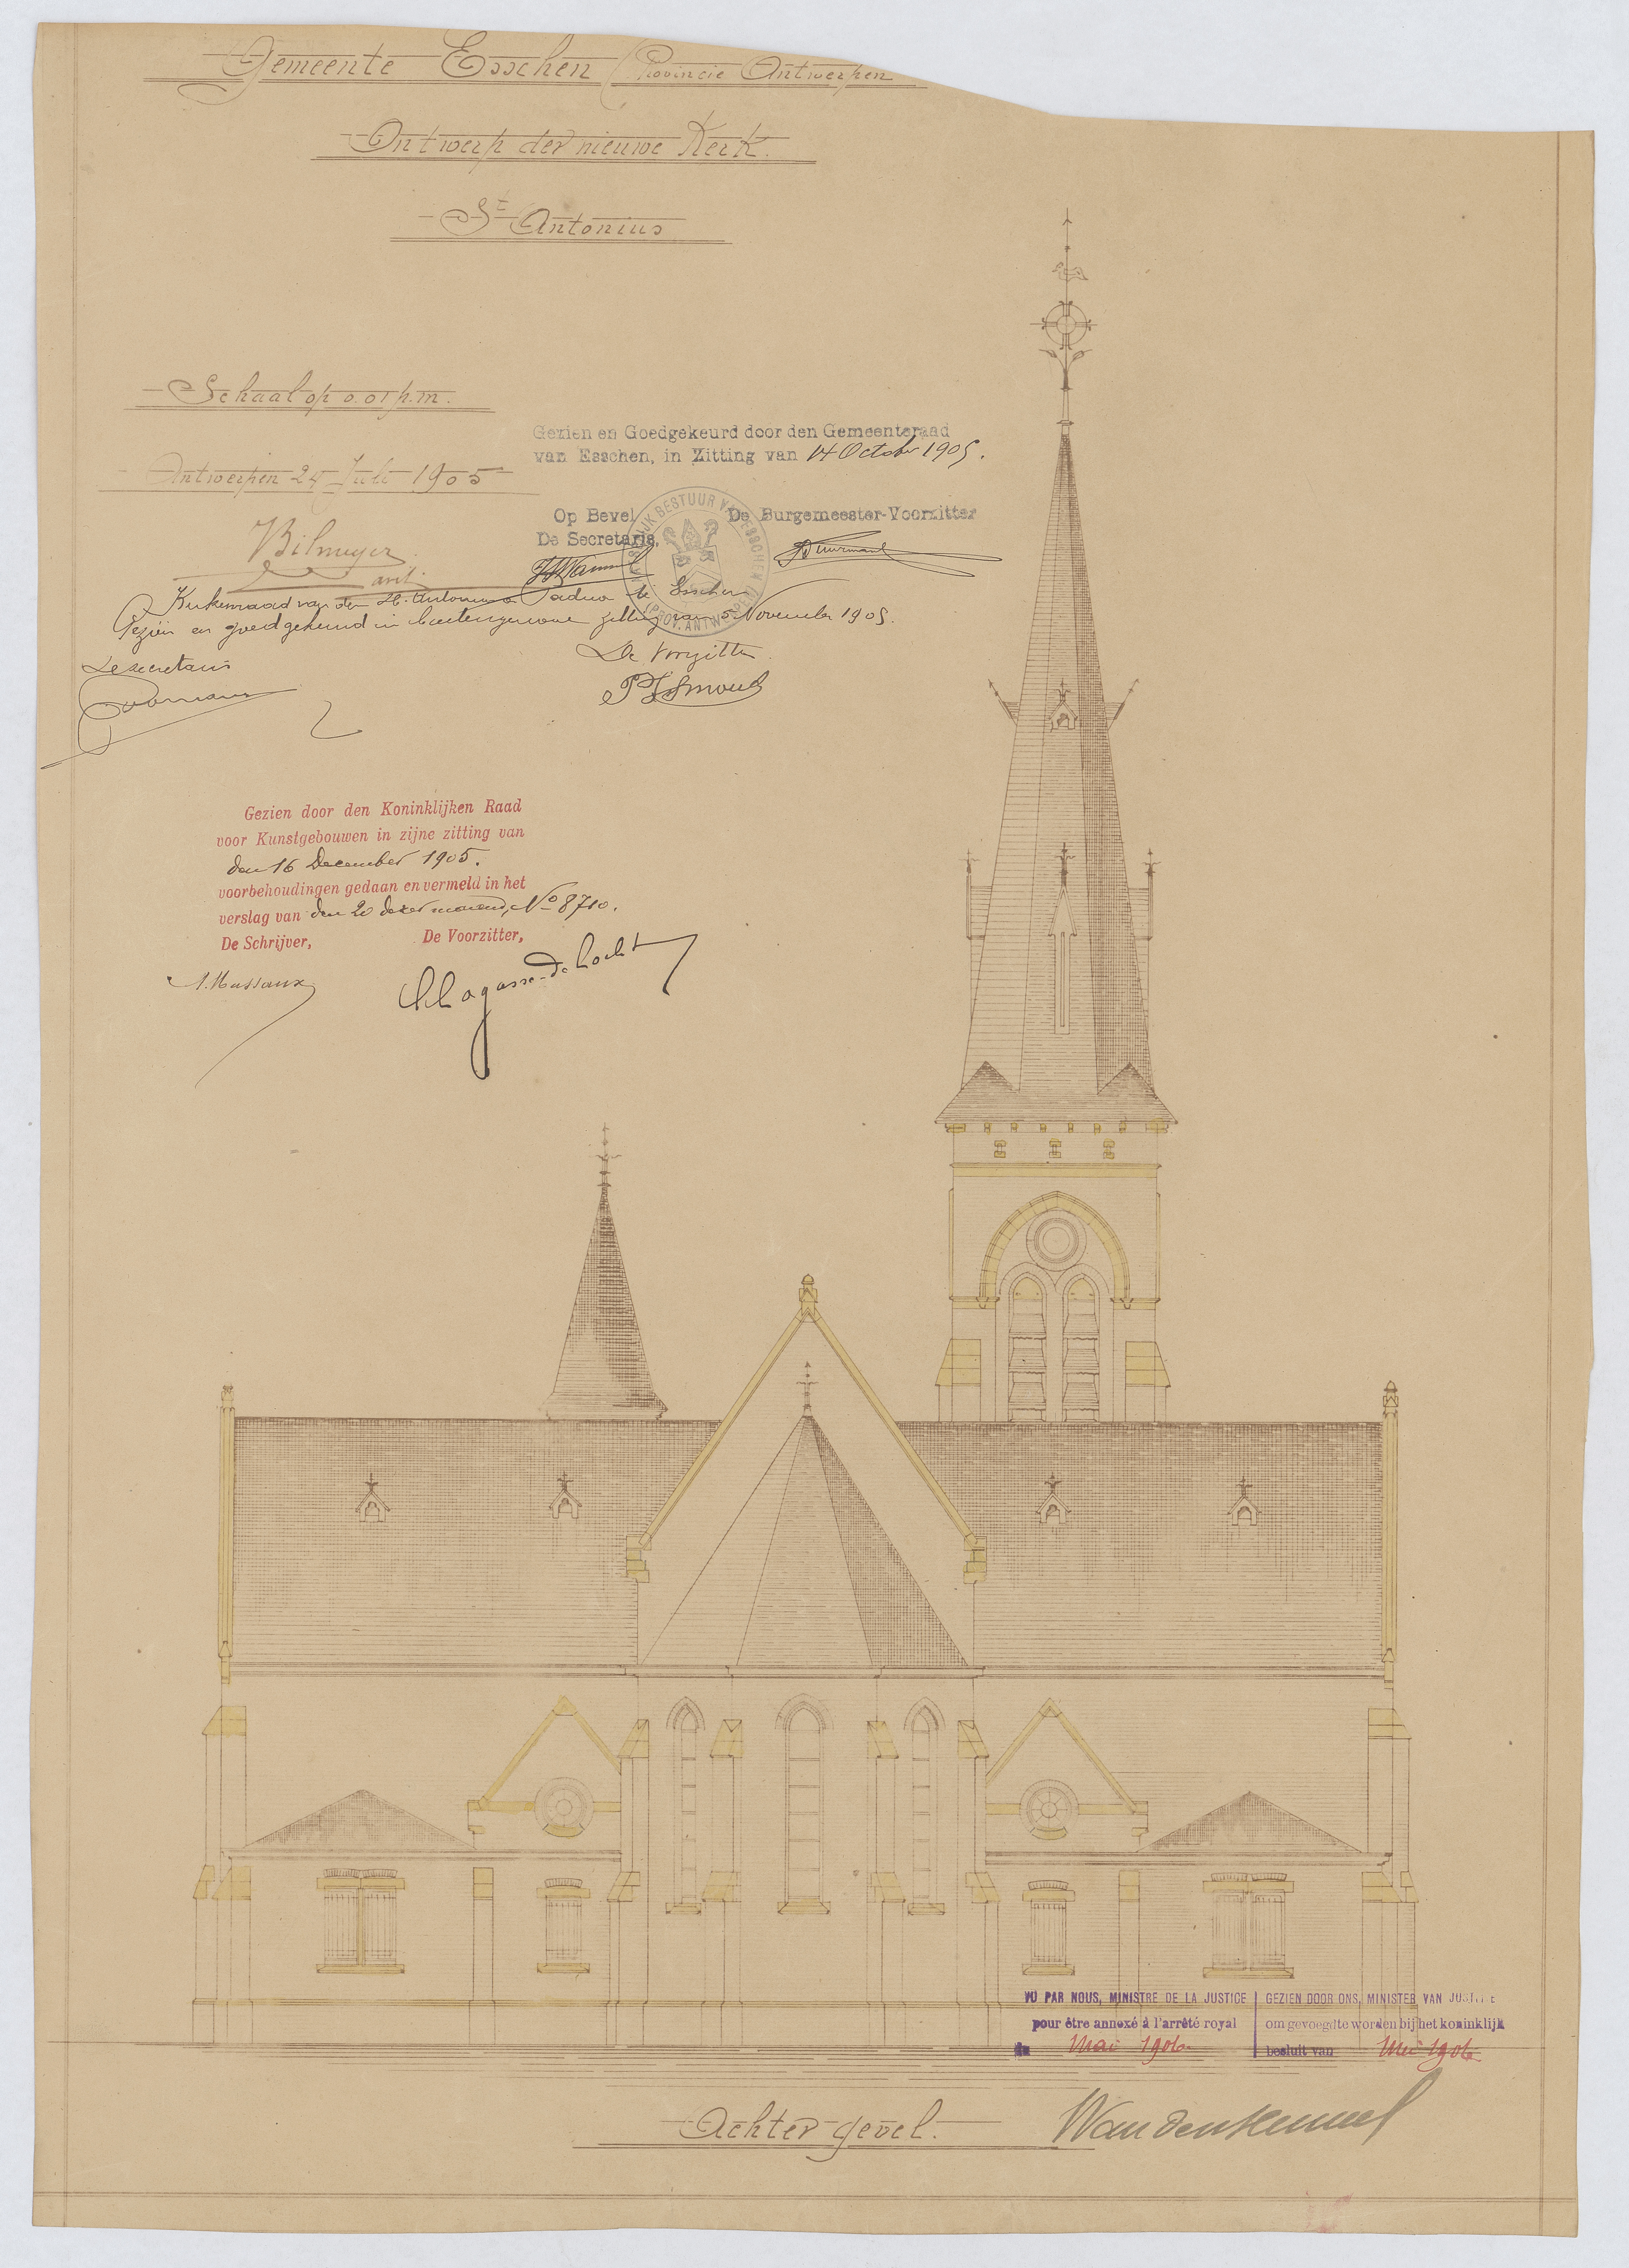 Gemeente Esschen (Provincie Antwerpen
Ontwerp der nieuwe Kerk.
St Antonius
Schaal op 0.01 p.m.
Antwerpen 24 Juli 1905
Bilmeyer
arct.
Gezien en Goedgekeurd door den Gemeenteraad
van Esschen, in Zitting van 14 October 1905.
Op Bevel
De Secretaris,
De Burgemeester-Voorzitter
BESTUUR VAN ESSCHEN
(PROV. ANTWERPEN)
Kerkenraad van den H. Antonius Padua te Esschen
Gezien en goedgekeurd in buitengewone zitting van 5 November 1905.
De secretaris
De Voorzitter
Gezien door den Koninklijken Raad
voor Kunstgebouwen in zijne zitting van
den 16 December 1905.
voorbehoudingen gedaan en vermeld in het
verslag van den 20 dezer maand, No 8710.
De Schrijver, De Voorzitter,
A. Massaux
Lagasse-de Locht
VU PAR NOUS, MINISTRE DE LA JUSTICE
pour être annexé à l'arrêté royal
du Mai 1906
GEZIEN DOOR ONS, MINISTER VAN JUSTITIE
om gevoegd te worden bij het koninklijk
besluit van Mei 1906
Achter gevel.